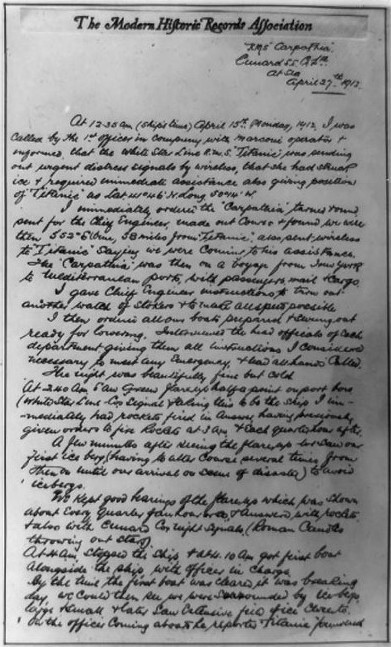 The Modern Historic Records Association
R.M.S. "Carpathia"
Cunard SS Co Ltd
At Sea
April 27th 1912
At 12.35 am (Ship's time) April 15th Monday, 1912, I was
called by the 1st officer in company with marconi operator &
informed, that the White Star Line R.M.S. "Titanic" was sending
out urgent distress signals by wireless, that she had struck
ice & required immediate assistance also giving position
of "Titanic" as Lat 41°46' N. Long 50°14' W.
I immediately ordered the "Carpathia" turned round
sent for the Chief Engineer, made out Course & found we were
then S 52° E (true) 58 miles from "Titanic", also sent wireless
to "Titanic" saying we were coming to his assistance.
The "Carpathia" was then on a voyage from New York
to Mediterranean ports, with passengers mail & cargo.
I gave Chief Engineer instructions to turn out
another watch of stokers & to make all speed possible
I then ordered all our boats prepared & swung out
ready for lowering. Interviewed the head officials of each
department giving them all instructions I considered
necessary to meet any emergency, & had all hands called.
The night was beautifully fine but cold
At 2.40 am Saw Green flare up half a point on port bow
(White Star Line Co Signal) & taking this to be the ship I im-
mediately had rockets fired in answer having previously
given orders to fire Rockets at 3 am & each quarter hour after.
A few minutes after seeing the flare up we saw our
first ice berg (having to alter course several times from
then on until our arrival on scene of disaster) to avoid
icebergs.
We kept good bearings of the flare up which was shown
about every quarter of an hour & answered with rockets
& also with Cunard Co night signals, (Roman Candles
throwing out stars).
At 4 am, stopped the ship, & at 4.10 am got first boat
alongside the ship, with officer in charge.
By the time the first boat was cleared it was breaking
day, we could then see we were surrounded by ice bergs
large & small & later saw extensive field of ice close to.
On the officer coming aboard he reported "Titanic" foundered